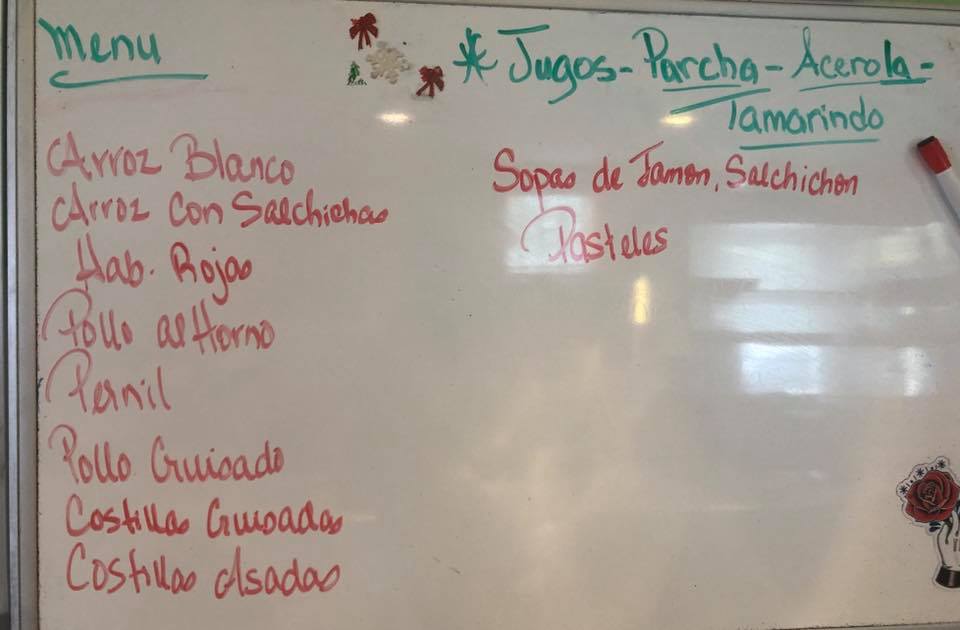 Menu
Arroz Blanco
Arroz Con Salchichas
Hab. Rojas
Pollo al Horno
Pernil
Pollo Guisado
Costillas Guisadas
Costillas Asadas
* Jugos - Parcha - Acerola -
Tamarindo
Sopas de Jamon, Salchichon
Pasteles